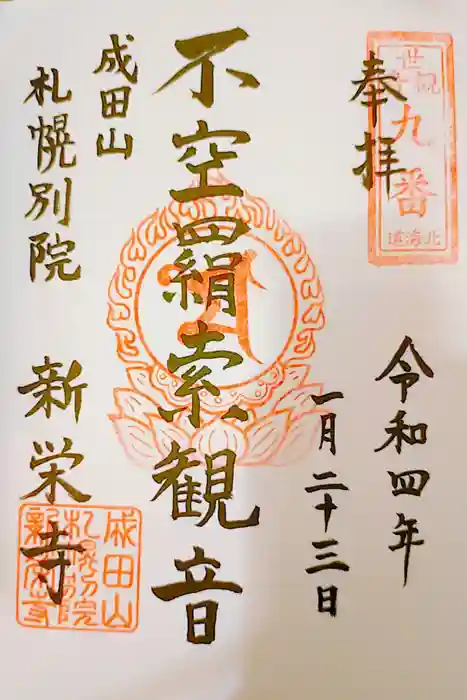 奉拝
北海道
世観
九番
令和四年
一月二十三日
不空羂索観音
成田山
札幌別院
新栄寺
成田山
札幌別院
新栄寺